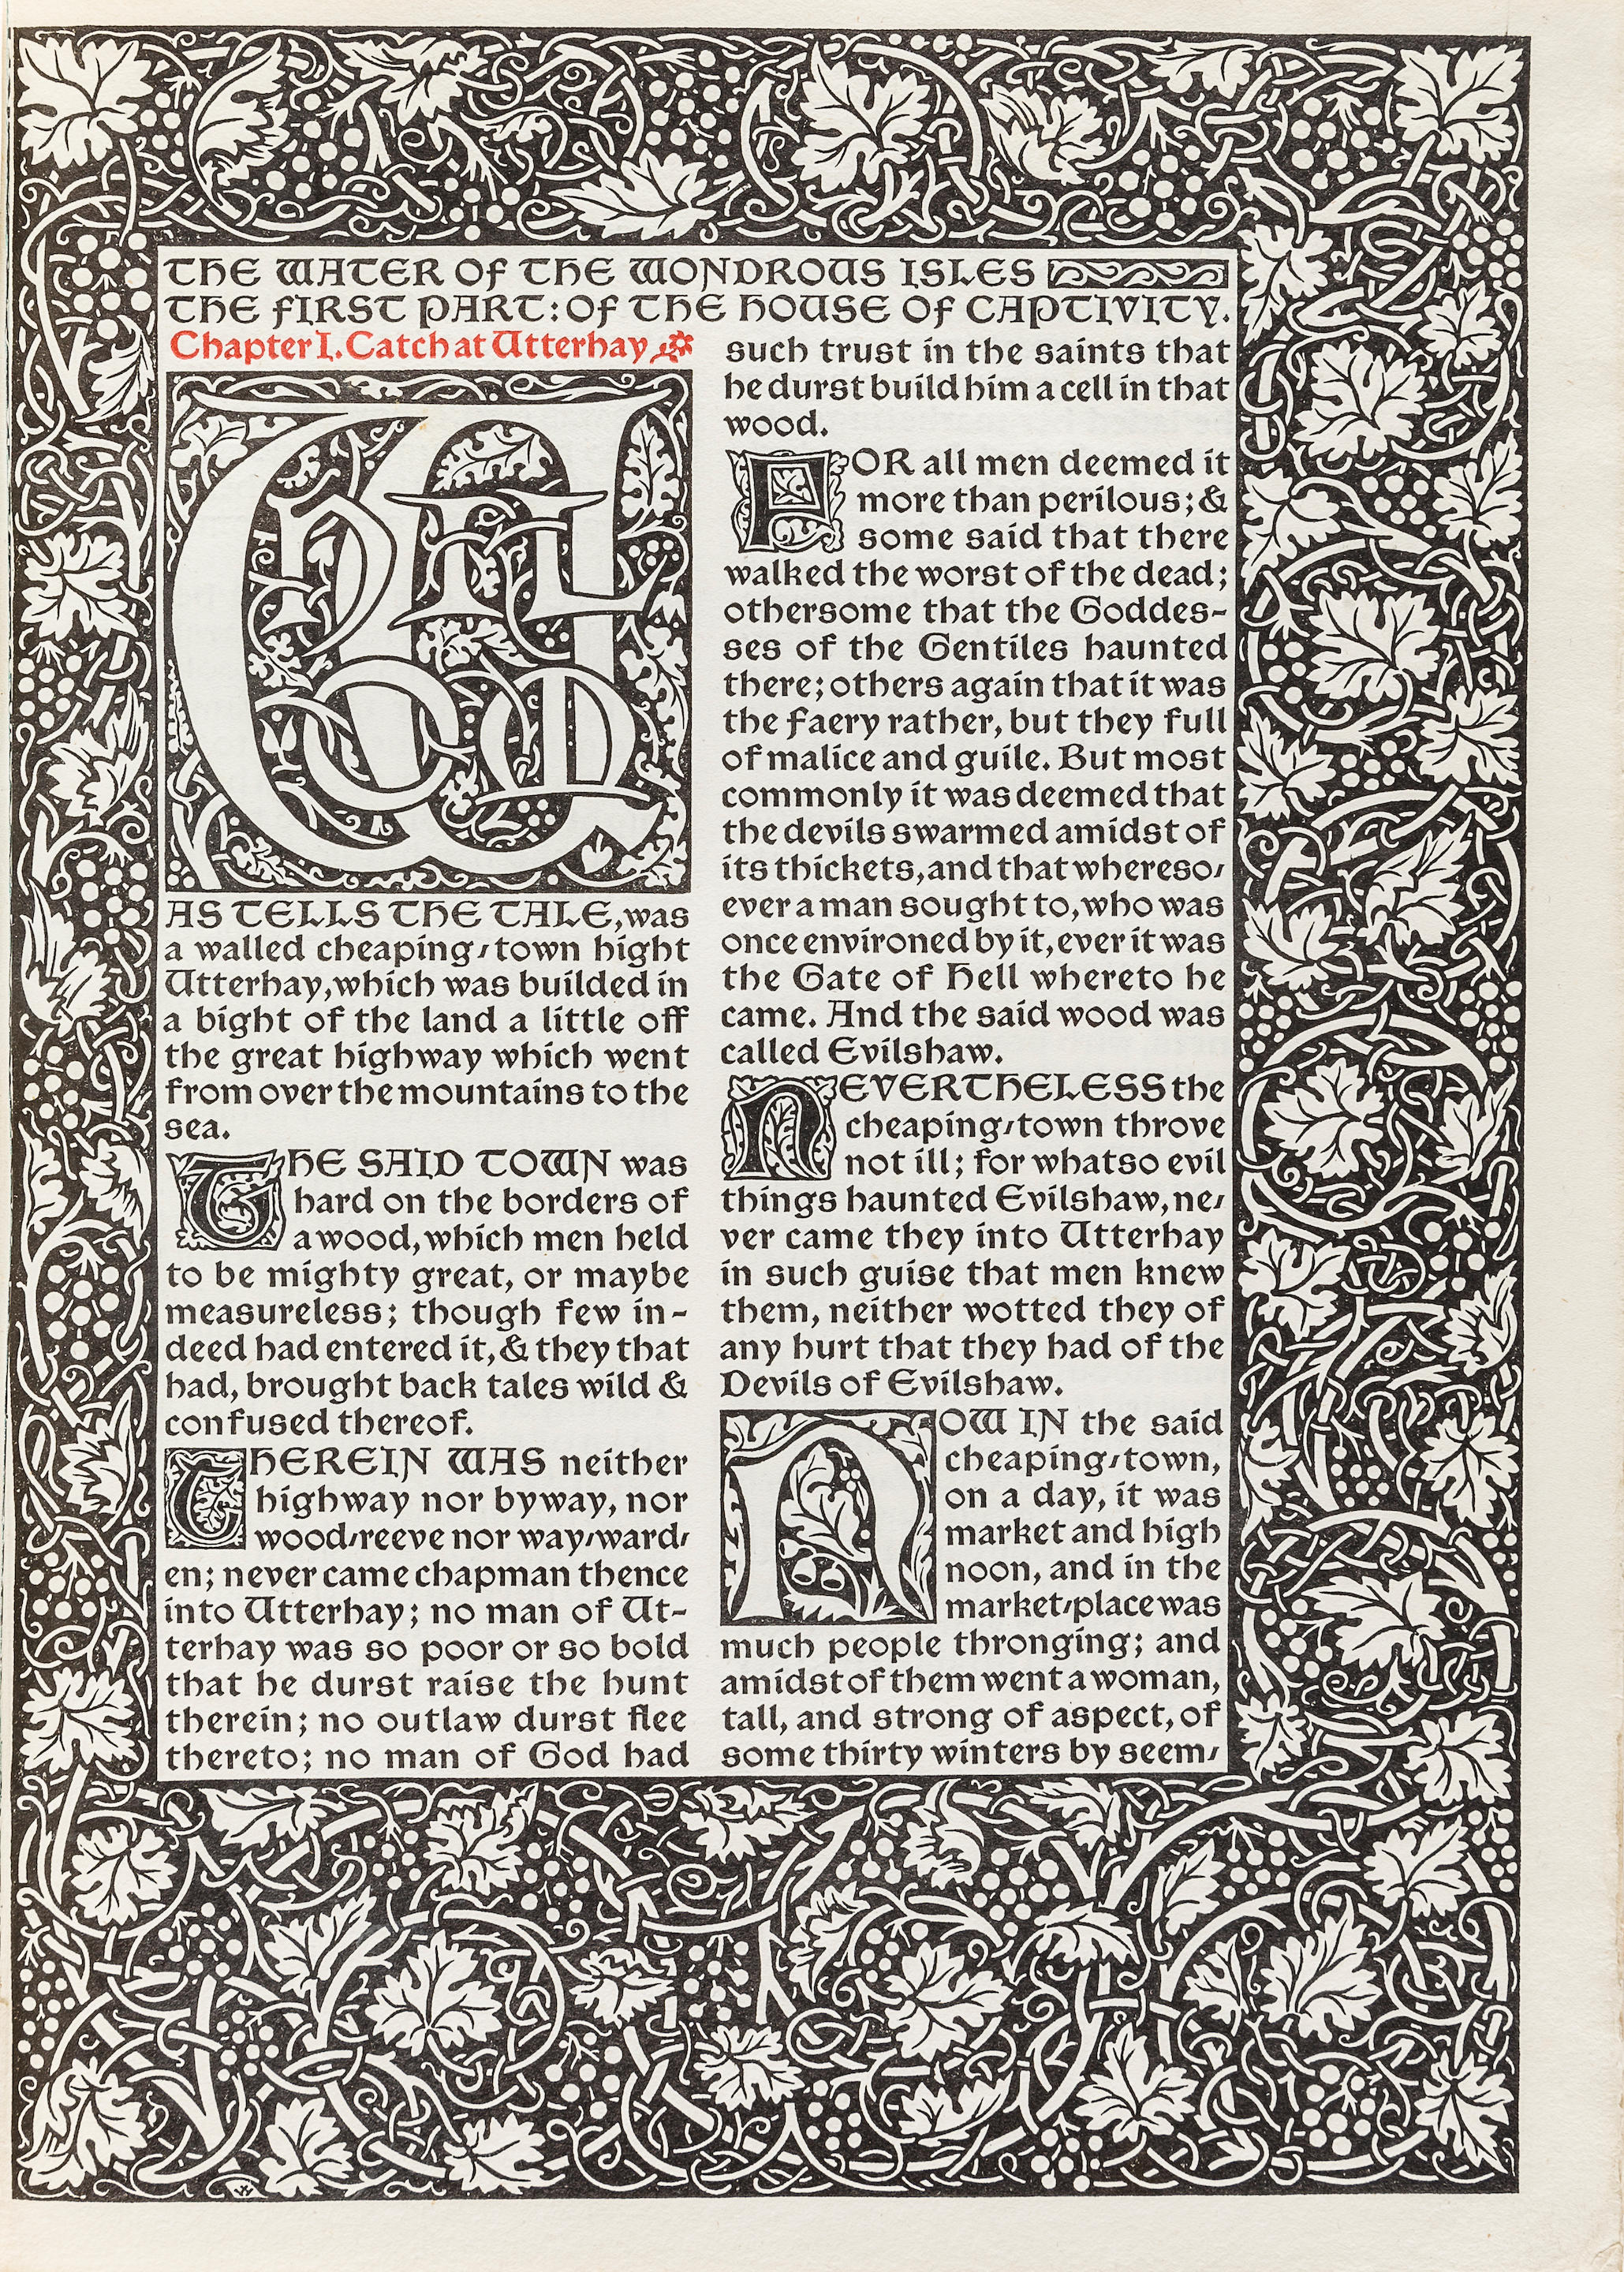 THE WATER OF THE WONDROUS ISLES
THE FIRST PART: OF THE HOUSE OF CAPTIVITY.
Chapter I. Catch at Utterhay
WHILOM
AS TELLS THE TALE, was
a walled cheaping-town hight
Utterhay, which was builded in
a bight of the land a little off
the great highway which went
from over the mountains to the
sea.
THE SAID TOWN was
hard on the borders of
a wood, which men held
to be mighty great, or maybe
measureless; though few in-
deed had entered it, & they that
had, brought back tales wild &
confused thereof.
THEREIN WAS neither
highway nor byway, nor
wood-reeve nor way-ward-
en; never came chapman thence
into Utterhay; no man of Ut-
terhay was so poor or so bold
that he durst raise the hunt
therein; no outlaw durst flee
thereto; no man of God had
such trust in the saints that
he durst build him a cell in that
wood.
FOR all men deemed it
more than perilous; &
some said that there
walked the worst of the dead;
othersome that the Goddes-
ses of the Gentiles haunted
there; others again that it was
the faery rather, but they full
of malice and guile. But most
commonly it was deemed that
the devils swarmed amidst of
its thickets, and that whereso-
ever a man sought to, who was
once environed by it, ever it was
the Gate of Hell whereto he
came. And the said wood was
called Evilshaw.
NEVERTHELESS the
cheaping-town throve
not ill; for whatso evil
things haunted Evilshaw, ne-
ver came they into Utterhay
in such guise that men knew
them, neither wotted they of
any hurt that they had of the
Devils of Evilshaw.
NOW IN the said
cheaping-town,
on a day, it was
market and high
noon, and in the
market-place was
much people thronging; and
amidst of them went a woman,
tall, and strong of aspect, of
some thirty winters by seem-